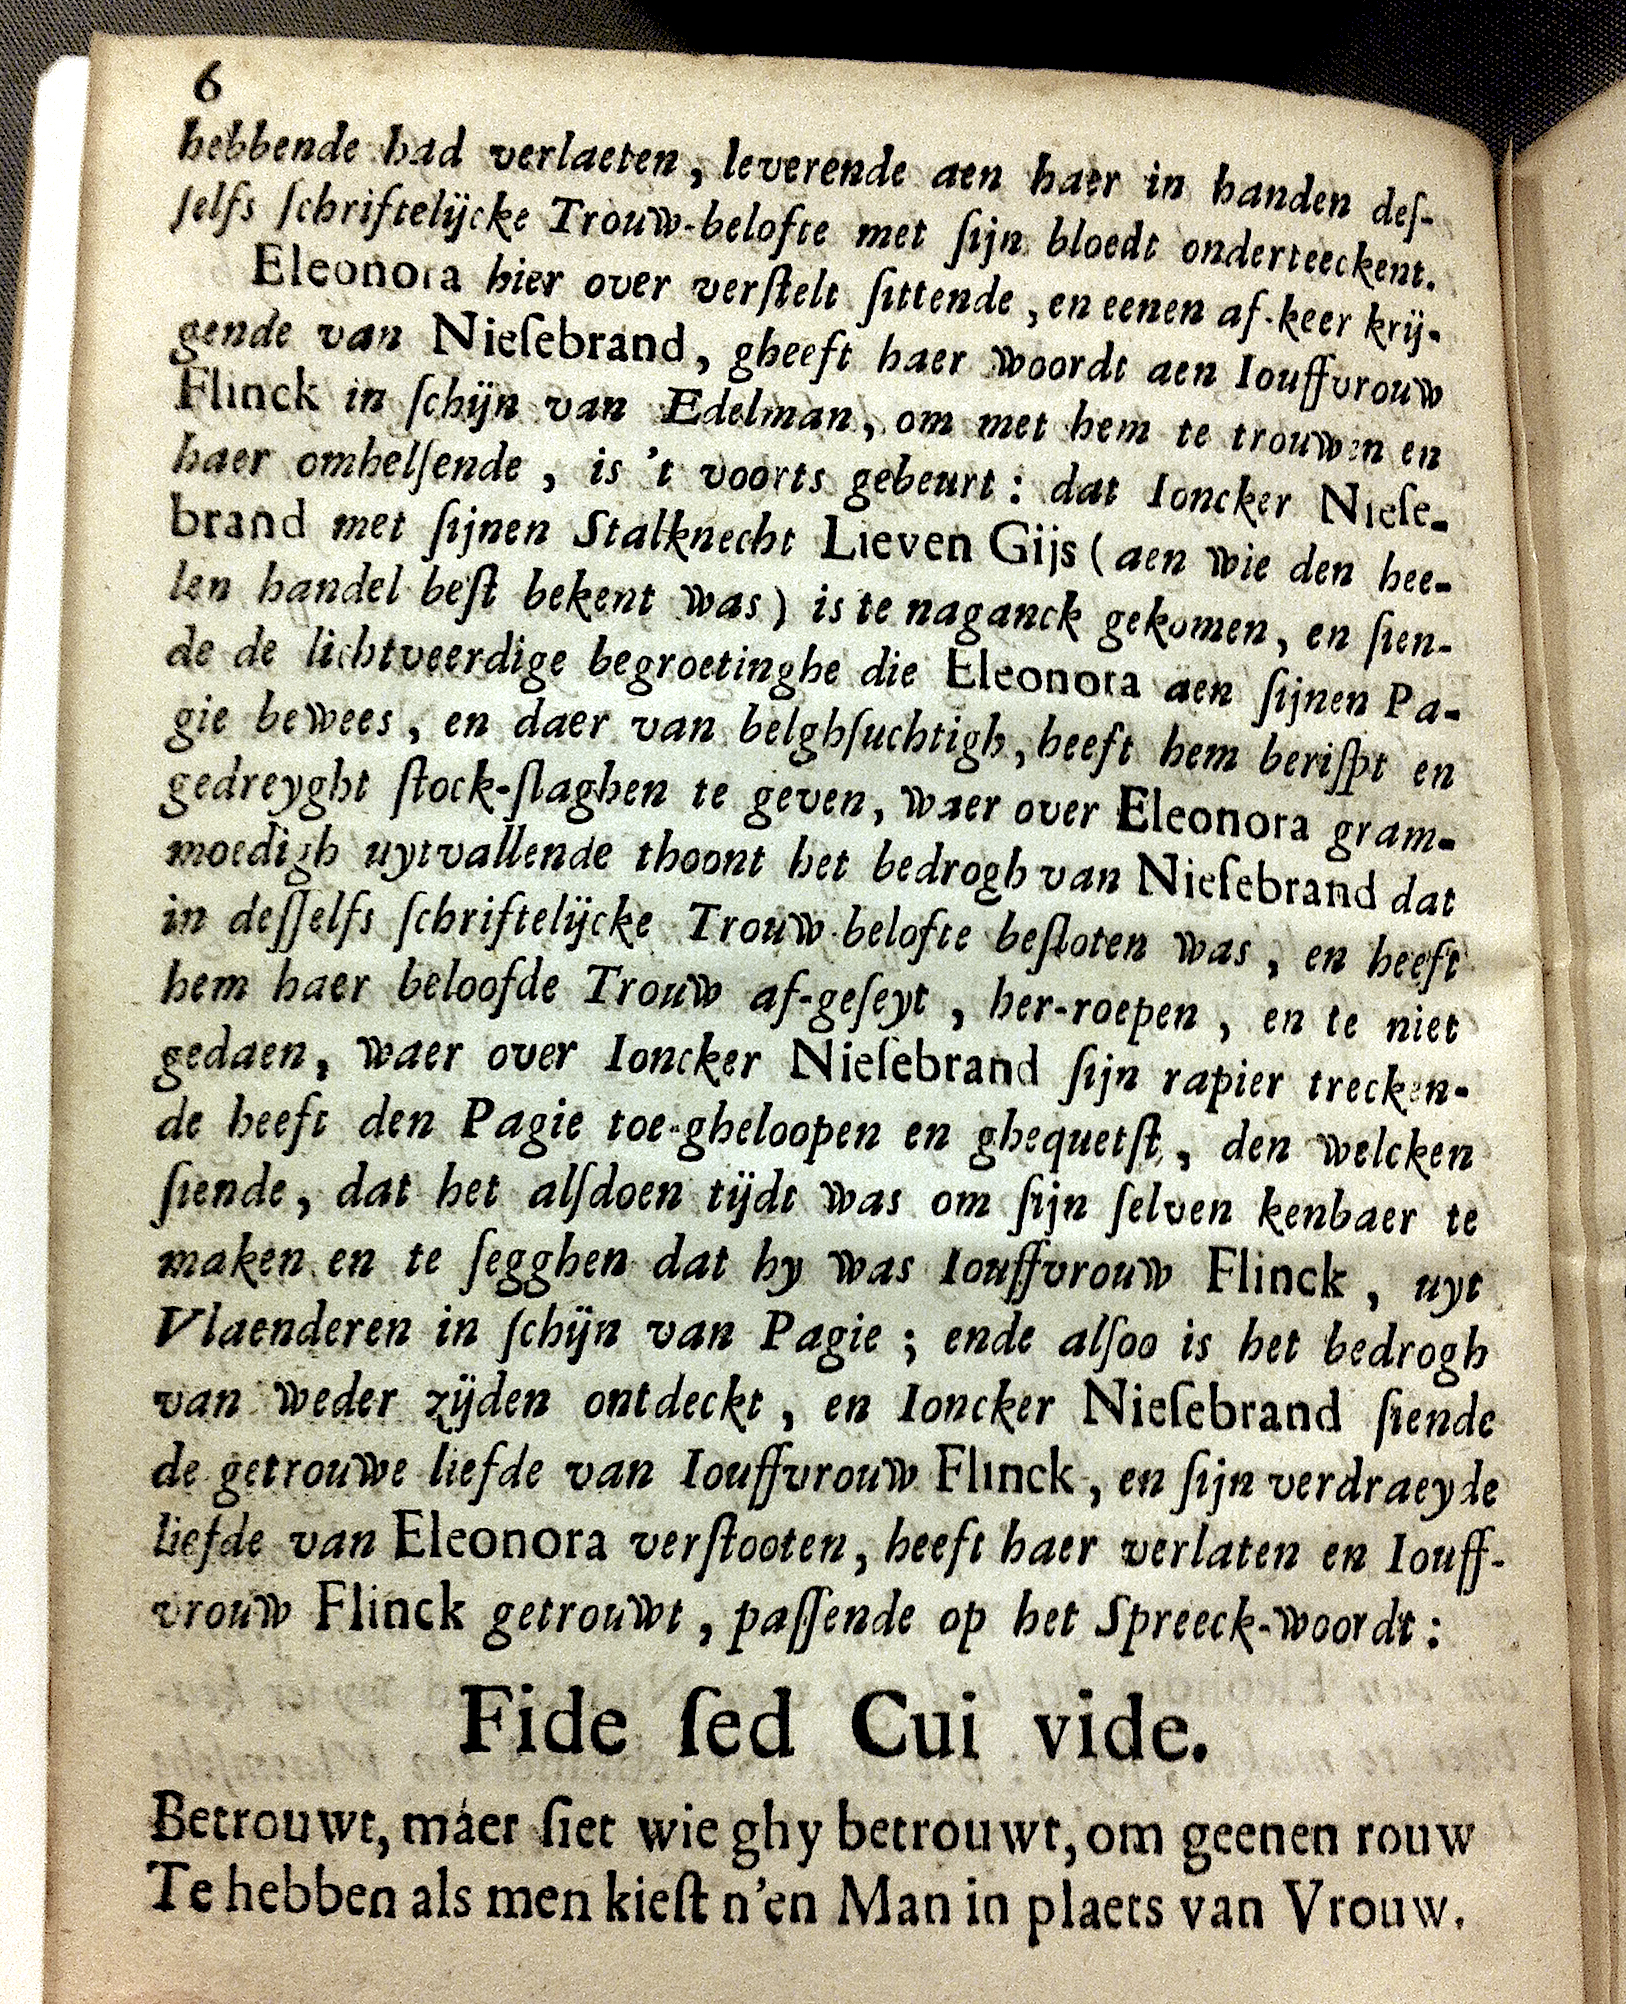 6
hebbende had verlaeten, leverende aen haer in handen deſ-
ſelfs ſchriftelijcke Trouw-belofte met ſijn bloedt onderteeckent.
Eleonora hier over verſtelt ſittende, en eenen af-keer krij-
gende van Nieſebrand, gheeft haer woordt aen Iouffvrouw
Flinck in ſchijn van Edelman, om met hem te trouwen en
haer omhelſende, is 't voorts gebeurt: dat Ioncker Nieſe-
brand met ſijnen Stalknecht Lieven Gijs (aen wie den hee-
len handel beſt bekent was) is te naganck gekomen, en ſien-
de de lichtveerdige begroetinghe die Eleonora aen ſijnen Pa-
gie bewees, en daer van belghſuchtigh, heeft hem beriſpt en
gedreyght ſtock-ſlaghen te geven, waer over Eleonora gram-
moedigh uytvallende thoont het bedrogh van Nieſebrand dat
in deſſelfs ſchriftelijcke Trouw-belofte beſloten was, en heeft
hem haer beloofde Trouw af-geſeyt, her-roepen, en te niet
gedaen, waer over Ioncker Nieſebrand ſijn rapier trecken-
de heeft den Pagie toe-gheloopen en ghequetſt, den welcken
ſiende, dat het alſdoen tijdt was om ſijn ſelven kenbaer te
maken en te ſegghen dat hy was Iouffvrouw Flinck, uyt
Vlaenderen in ſchijn van Pagie; ende alſoo is het bedrogh
van weder zijden ontdeckt, en Ioncker Nieſebrand ſiende
de getrouwe liefde van Iouffvrouw Flinck, en ſijn verdraeyde
liefde van Eleonora verſtooten, heeft haer verlaten en Iouff-
vrouw Flinck getrouwt, paſſende op het Spreeck-woordt:
Fide ſed Cui vide.
Betrouwt, maer ſiet wie ghy betrouwt, om geenen rouw
Te hebben als men kieſt n'en Man in plaets van Vrouw.